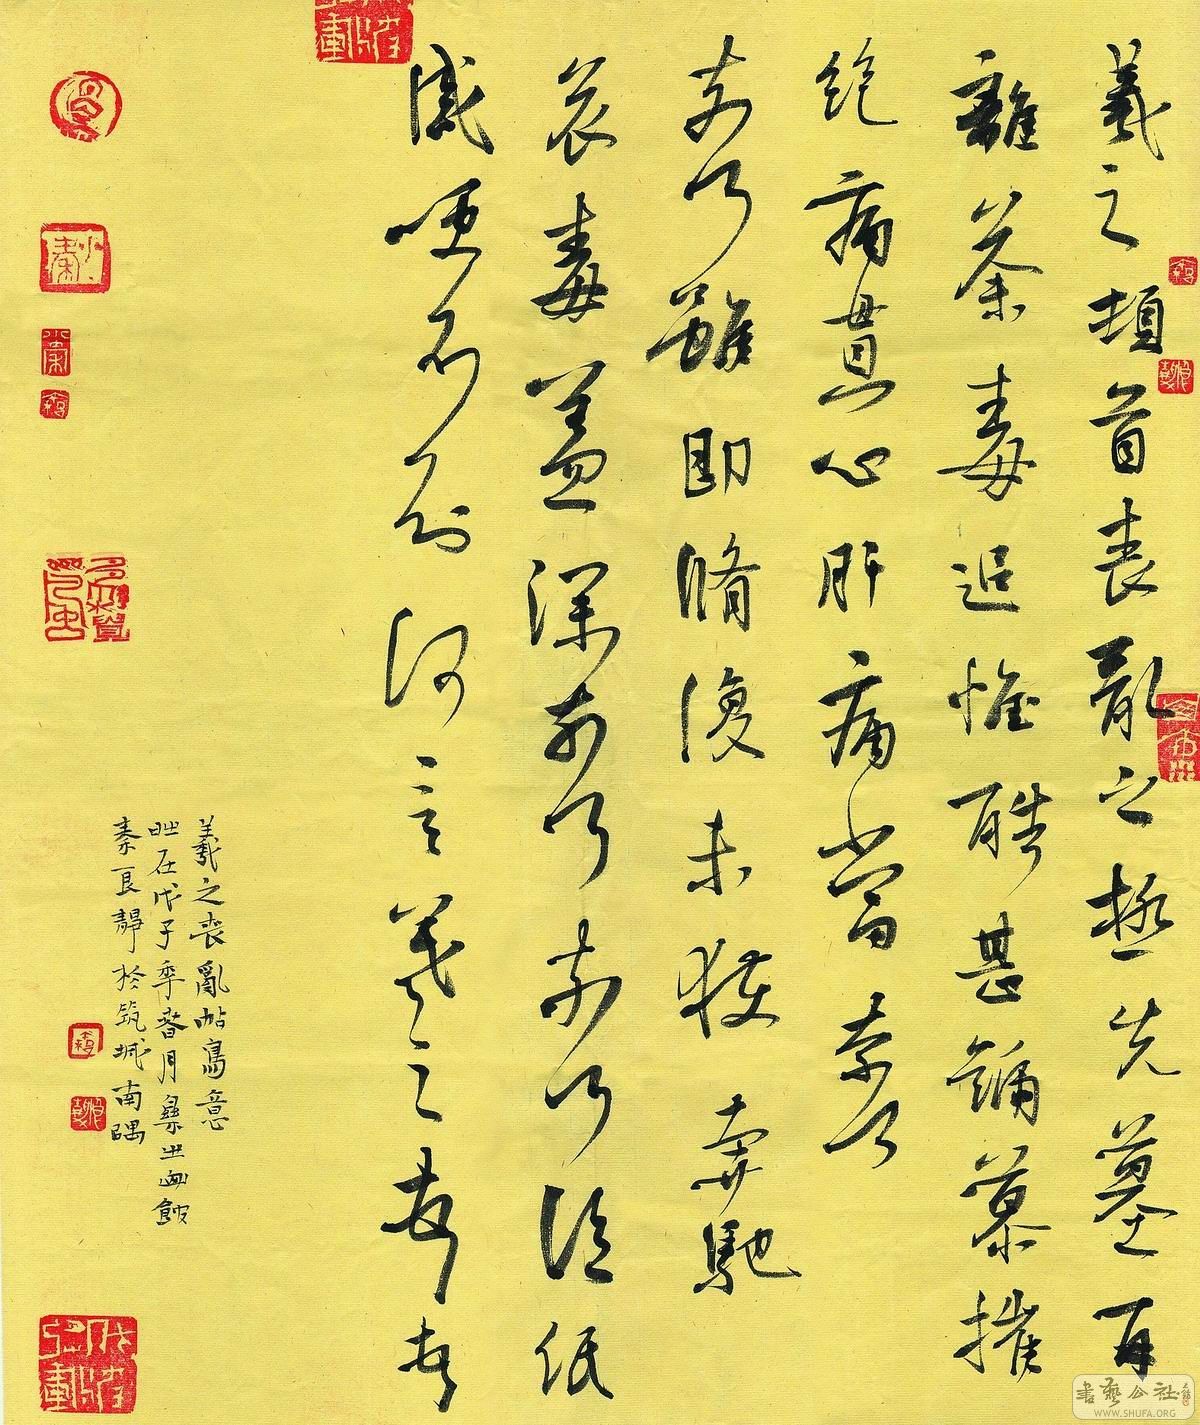 羲之頓首喪亂之極先墓再
離荼毒追惟酷甚號慕摧
絕痛貫心肝痛當奈何
奈何雖即脩復未獲奔馳
哀毒益深奈何奈何臨紙
感哽不知何言羲之頓首頓首
羲之喪亂帖寫意
時在戊子季春月
秦良靜於筑城南隅
書藝公社
WWW.SHUFA.ORG